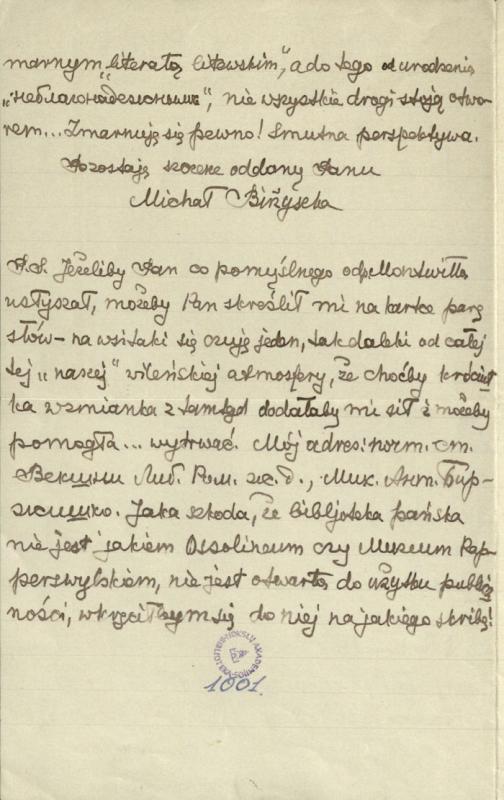 marnym „literatą litewskim", a do tego od urodzenia
„неблагонадежным", nie wszystkie drogi stoją otwo-
rem... Zmarnuję się pewno! Smutna perspektywa.
Pozostaję szczerze oddany Panu
Michał Biržyszka
P.S. Jeżeliby Pan co pomyślnego od p. Montwiłła
usłyszał, możeby Pan skreślił mi na kartce parę
słów – na wsi taki się czuję jeden, tak daleki od całej
tej „naszej" wileńskiej atmosfery, że choćby króciut-
ka wzmianka z tamtąd dodałaby mi sił i możeby
pomogła... wytrwać. Mój adres: почт. ст.
Векшни Либ. Ром. ж. д., Мих. Ант. Бир-
жишко. Jaka szkoda, że bibljoteka pańska
nie jest jakiem Ossolineum czy Muzeum Rap-
perswylskiem, nie jest otwartą do użytku publicz-
ności, wkręciłbym się do niej na jakiego skribę!
1001.